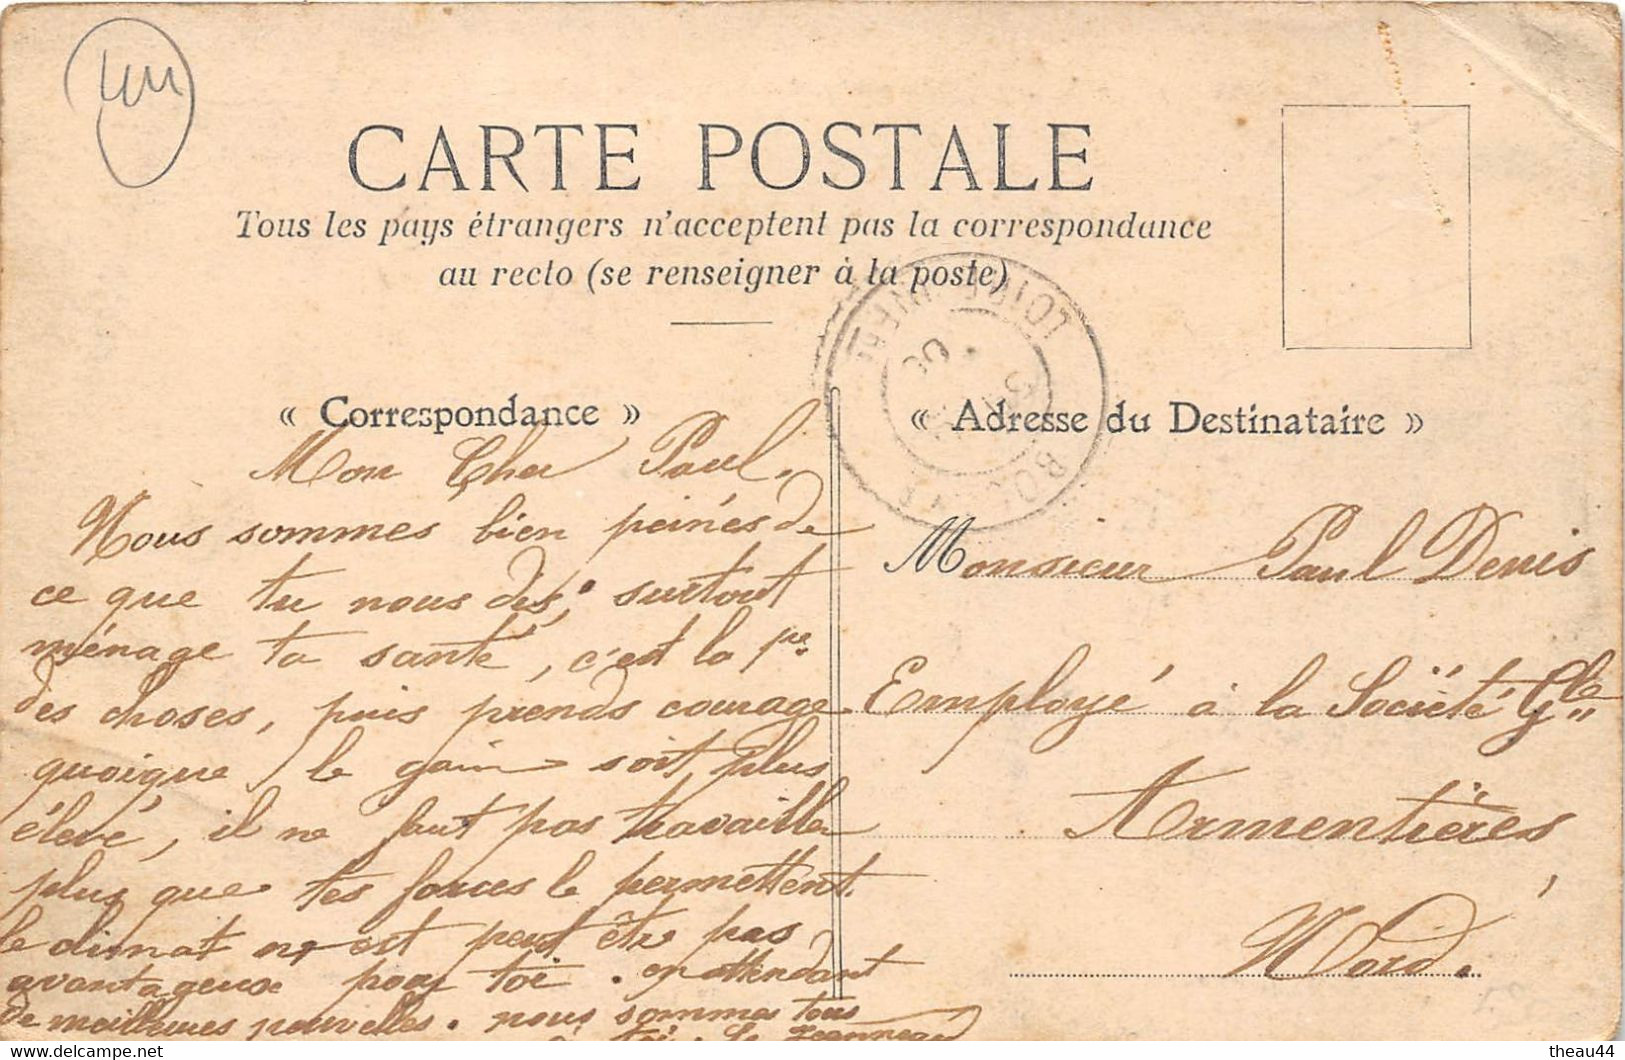 44
CARTE POSTALE
Tous les pays étrangers n'acceptent pas la correspondance
au recto (se renseigner à la poste)
LOIRE INFRE
« Correspondance »
Mon Cher Paul.
Nous sommes bien peinés de
ce que tu nous dis, surtout
ménage ta santé, c'est la pre
des choses, puis prends courage.
quoique le gain soit plus
élevé, il ne faut pas travailler
plus que tes forces le permettent.
le climat n'est peut être pas
avantageux pour toi. en attendant
de meilleures nouvelles. nous sommes tous
à toi. Jeanneau
« Adresse du Destinataire »
Monsieur Paul Denis
Employé à la Société Gle
Armentières
Nord.
theau44